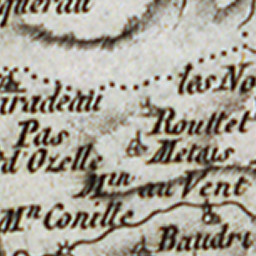 querau
les No
aradeau
Pas
d'Ozelle
Routtet
Metais
Min au Vent
Mn Conille
Baudri